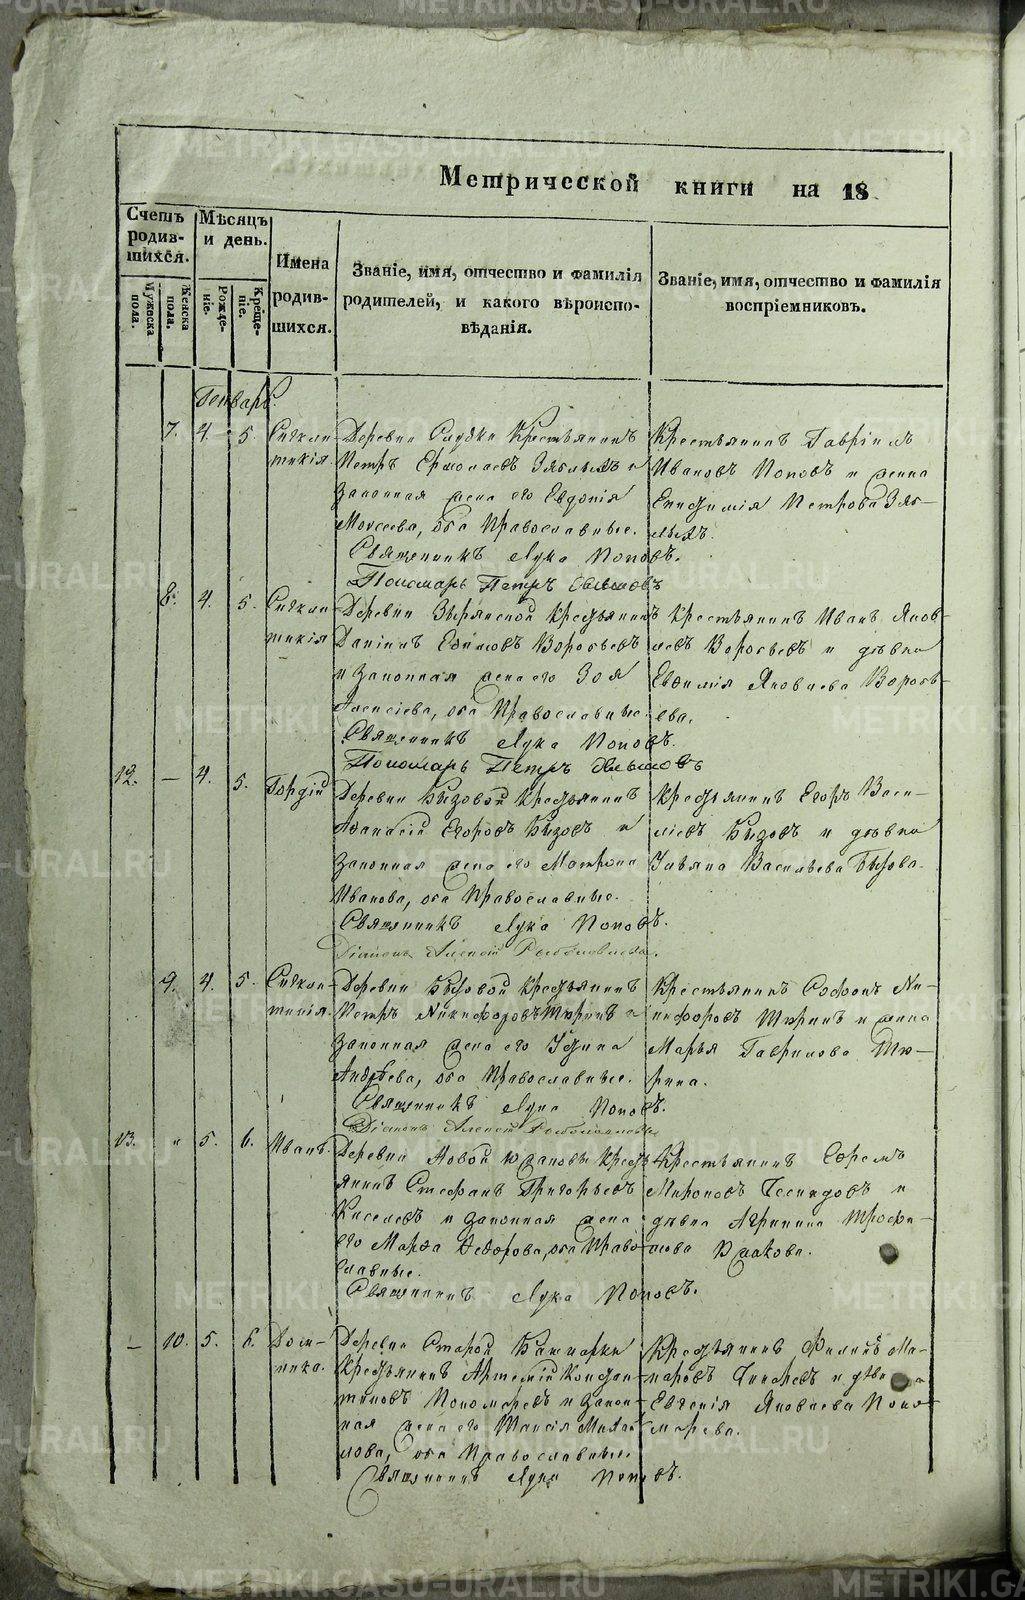 Метрической книги на 18
Счетъ родившихся.
Мѣсяцъ и день.
Имена родившихся.
Званіе, имя, отчество и фамилія родителей, и какого вѣроисповѣданія.
Званіе, имя, отчество и фамилія воспріемниковъ.
Мужеска пола.
Женска пола.
Рожденіе.
Крещеніе.
Генварь.
7. 4. 5. Синкли-
тикія
Деревни Крестьянинъ
Петръ Ермолаевъ и
Законная жена его Евдокія
Моисеева, оба Православные.
Священникъ Лука Поповъ.
Пономарь Петръ
Крестьянинъ Гавріилъ
Ивановъ Поповъ и жена
Петрова
8. 4. 5. Синкли-
тикія
Деревни Зырянской Крестьянинъ
Даніилъ Ефимовъ Воробьевъ
и Законная жена его Зоя
Алексіева, оба Православные.
Священникъ Лука Поповъ.
Пономарь Петръ
Крестьянинъ Иванъ Яков-
левъ Воробьевъ и дѣвка
Евфимія Яковлева Вороб-
ева.
12. — 4. 5. Гордій
Деревни Бызовой Крестьянинъ
Афанасій Егоровъ Бызовъ и
Законная жена его Матрона
Иванова, оба Православные.
Священникъ Лука Поповъ.
Діаконъ Алексій
Крестьянинъ Егоръ Васи-
ліевъ Бызовъ и дѣвка
Ульяна Васильева Бызова.
9. 4. 5. Синкли-
тикія.
Деревни Бызовой Крестьянинъ
Петръ Никифоровъ Тюринъ и
Законная жена его
Андреева, оба Православные.
Священникъ Лука Поповъ.
Діаконъ Алексій
Крестьянинъ Софонъ Ни-
кифоровъ Тюринъ и жена
Марья Гаврилова Тю-
рина.
13. " 5. 6. Иванъ.
Деревни Новой Кресть-
янинъ Стефанъ Григорьевъ
Киселевъ и законная жена
его Марфа Федорова, оба Право-
славные.
Священникъ Лука Поповъ.
Крестьянинъ Ефремъ
Мироновъ и
дѣвка Агрипина Трофи-
мова
— 10. 5. 6. Доми-
ника.
Деревни Старой Башкарки
Крестьянинъ Артемій Констан-
тиновъ Пономаревъ и закон-
ная жена его Таисія Михай-
лова, оба Православные.
Священникъ Лука Поповъ.
Крестьянинъ Филипъ Ма-
каровъ и дѣвка
Евгенія Яковлева Поно-
марева.
METRIKI.GASO-URAL.RU